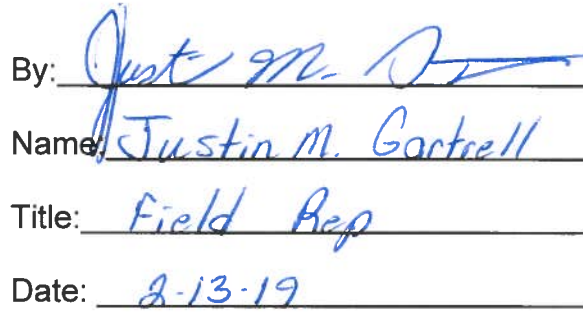 By: Just M.
Name: Justin M. Gartrell
Title: Field Rep
Date: 2-13-19